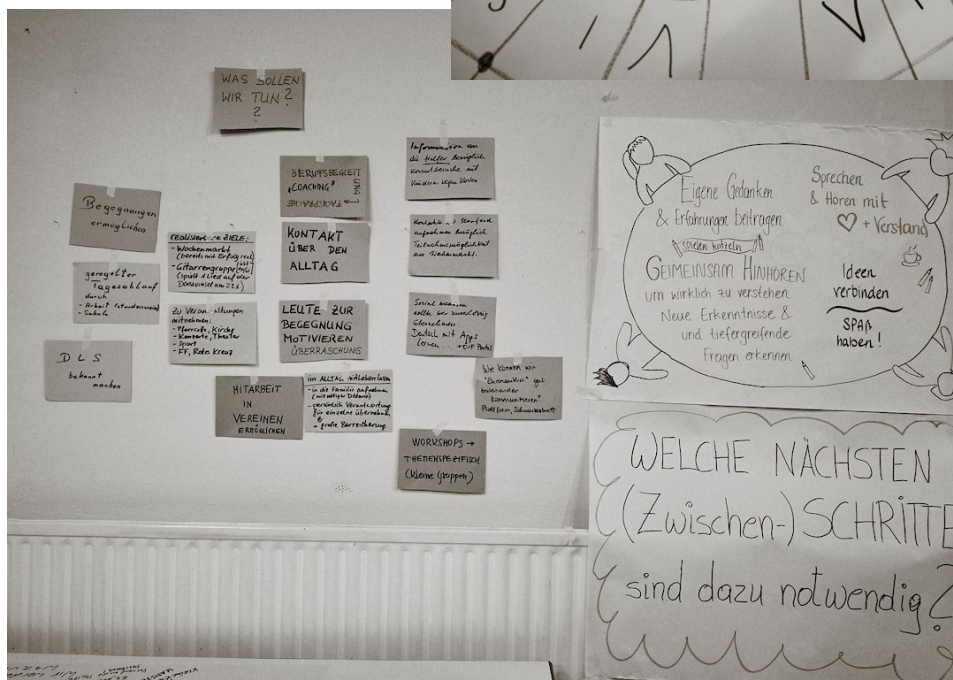 WAS SOLLEN
WIR TUN?
?
Begegnungen
ermöglichen
geregelter
Tagesablauf
durch
- Arbeit
- Schule
DLS
bekannt
machen
realisierte ZIELE:
- Wochenmarkt
(bereits mit Erfolg
- Gitarrengruppe
(spielt 1 Lied auf der
Zu Veranstaltungen
mitnehmen:
- Pfarrcafe, Kirche
- Konzerte, Theater
- Sport
- FF, Rotes Kreuz
BERUFSBEGLEITUNG
"COACHING"
FACHSPRACHE
KONTAKT
ÜBER DEN
ALLTAG
LEUTE ZUR
BEGEGNUNG
MOTIVIEREN
ÜBERRASCHUNG
MITARBEIT
IN
VEREINEN
ERMÖGLICHEN
im ALLTAG mitleben lassen
- in die Familie aufnehmen
- persönlich Verantwortung
für einzelne übernehmen
- große Bereicherung
Information an
die Helfer bezüglich
mit
Kindern
aufnehmen bezüglich
Teilnahmemöglichkeit
am
Deutsch mit Apps
lernen... + ÖIF Portal
Wie können wir
gut
miteinander
kommunizieren
Plattform,
WORKSHOPS →
THEMENSPEZIFISCH
(kleine Gruppen)
Eigene Gedanken
& Erfahrungen beitragen
spielen kritzeln
GEMEINSAM HINHÖREN
um wirklich zu verstehen
Neue Erkenntnisse &
und tiefergreifende
Fragen erkennen
Sprechen
& Hören mit
♡ + Verstand
Ideen
verbinden
SPAß
haben!
WELCHE NÄCHSTEN
(Zwischen-) SCHRITTE
sind dazu notwendig?